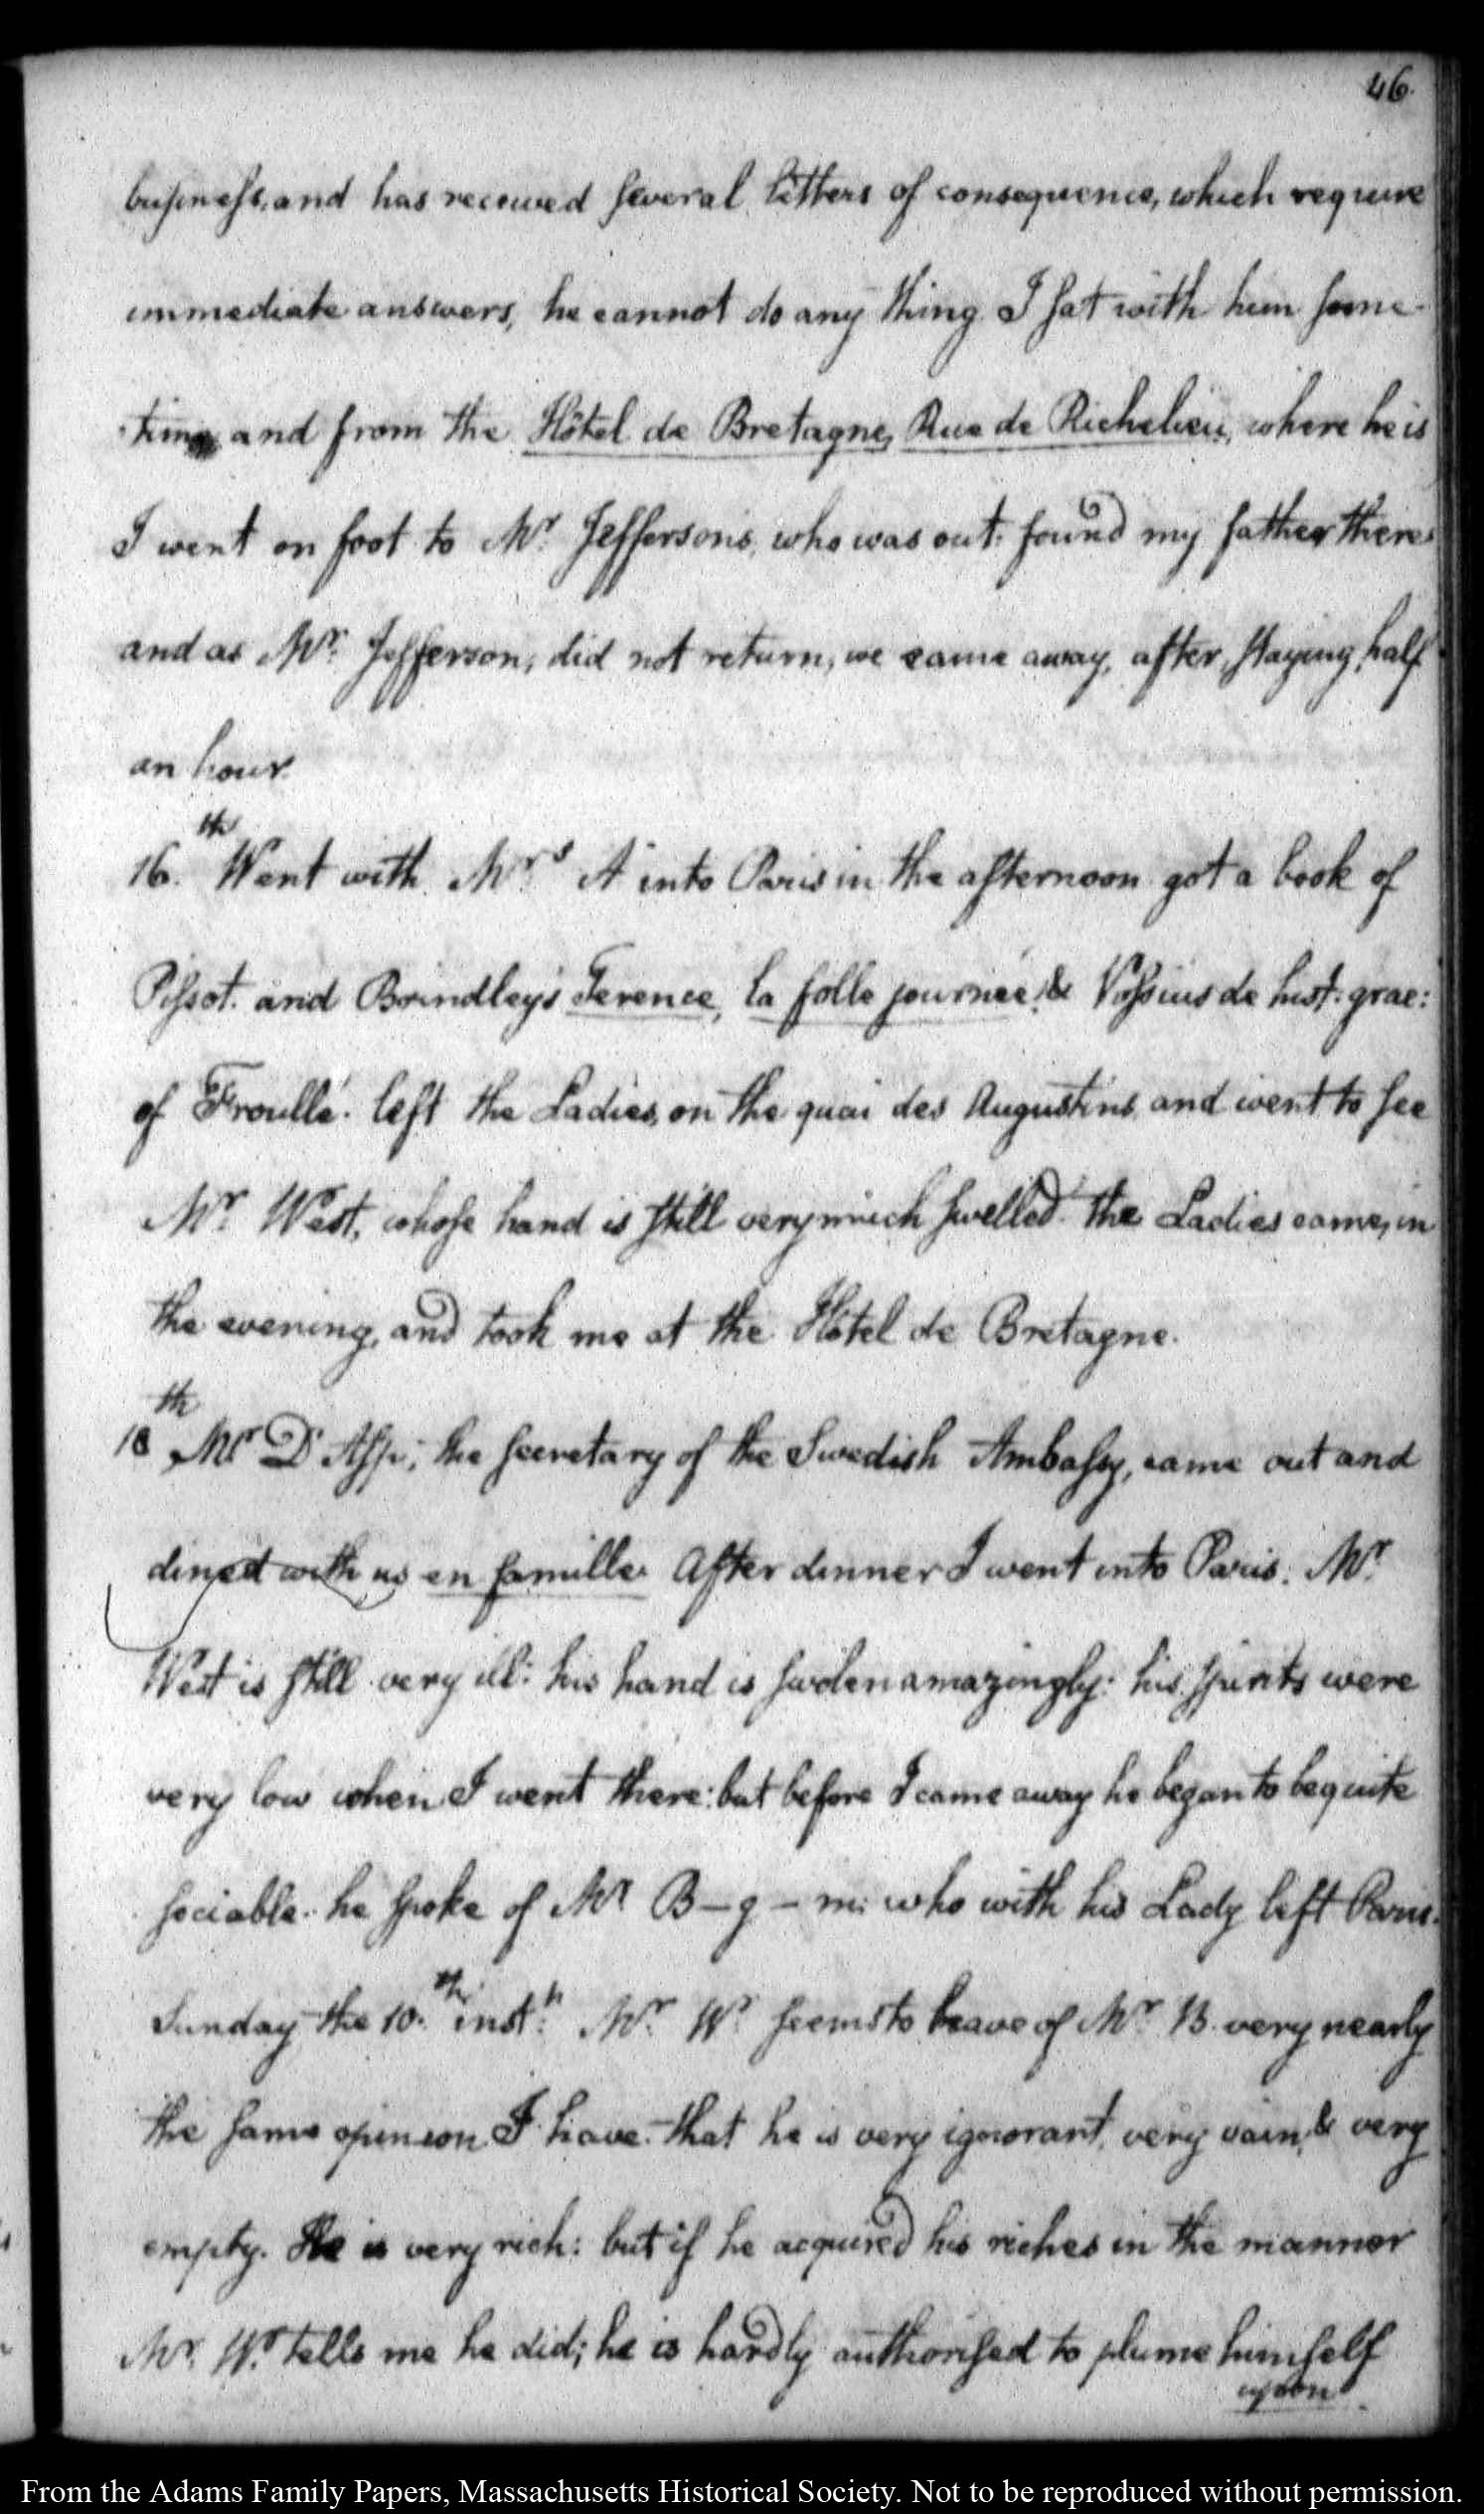 46.
business, and has received several letters of consequence, which require
immediate answers, he cannot do any thing. I sat with him some-
-time and from the Hôtel de Bretagne, Rue de Richelieu, where he is
I went on foot to Mr. Jeffersons, who was out. found my father there
and as Mr. Jefferson, did not return, we came away, after staying half
an hour.
16.th Went with Mrs. A into Paris in the afternoon got a book of
Pissot. and Brindley's Terence, la folle journée, & Vossius de hist: grae:
of Froullé. left the Ladies, on the quai des Augustins, and went to see
Mr. West, whose hand is still very much swelled. the Ladies came, in
the evening, and took me at the Hôtel de Bretagne.
18th Mr. D'Asp, the secretary of the Swedish Ambassy, came out and
dined with us en famille. After dinner I went into Paris. Mr.
West is still very ill: his hand is swolen amazingly: his spirits were
very low when I went there: but before I came away he began to be quite
sociable. he spoke of Mr. B—g—m: who with his Lady left Paris.
Sunday the 10.th inst. Mr. W. seems to have of Mr. B. very nearly
the same opinion I have. that he is very ignorant, very vain, & very
empty. He is very rich: but if he acquired his riches in the manner
Mr. W. tells me he did; he is hardly authorised to plume himself
upon
From the Adams Family Papers, Massachusetts Historical Society. Not to be reproduced without permission.